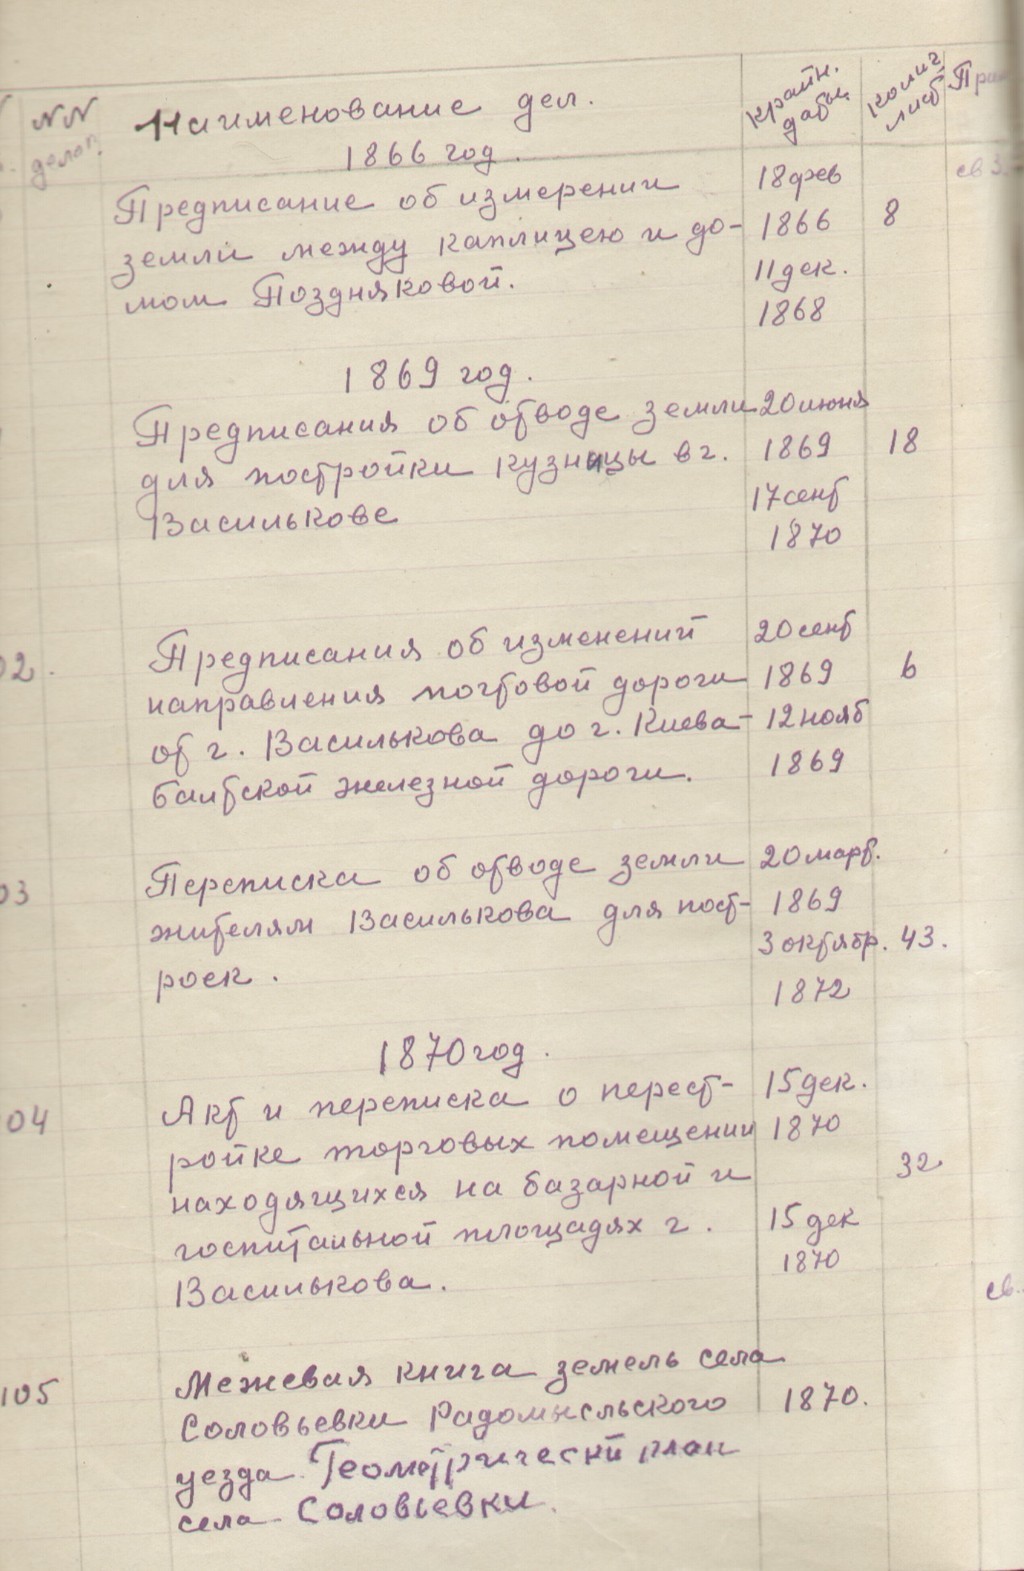 NN делоп. Наименование дел. крайн. даты колич. лист
1866 год.
Предписание об измерении 18 фев
земли между каплицею и до- 1866 8
мом Поздняковой. 11 дек.
1868
1869 год.
Предписания об отводе земли 20 июня
для постройки кузницы в г. 1869 18
Василькове 17 сент
1870
02. Предписания об изменений 20 сент
направления почтовой дороги 1869 6
от г. Василькова до г. Киева- 12 нояб
балтской железной дороги. 1869
03 Переписка об отводе земли 20 март.
жителям Василькова для пост- 1869
роек. 3 октябр. 43.
1872
1870 год.
04 Акт и переписка о перест- 15 дек.
ройке торговых помещении 1870
находящихся на базарной и 32
госпитальной площадях г. 15 дек
Василькова. 1870
св.
105 Межевая книга земель села
Соловьевки Радомысльского 1870.
уезда. Геометрический план
села Соловьевки.